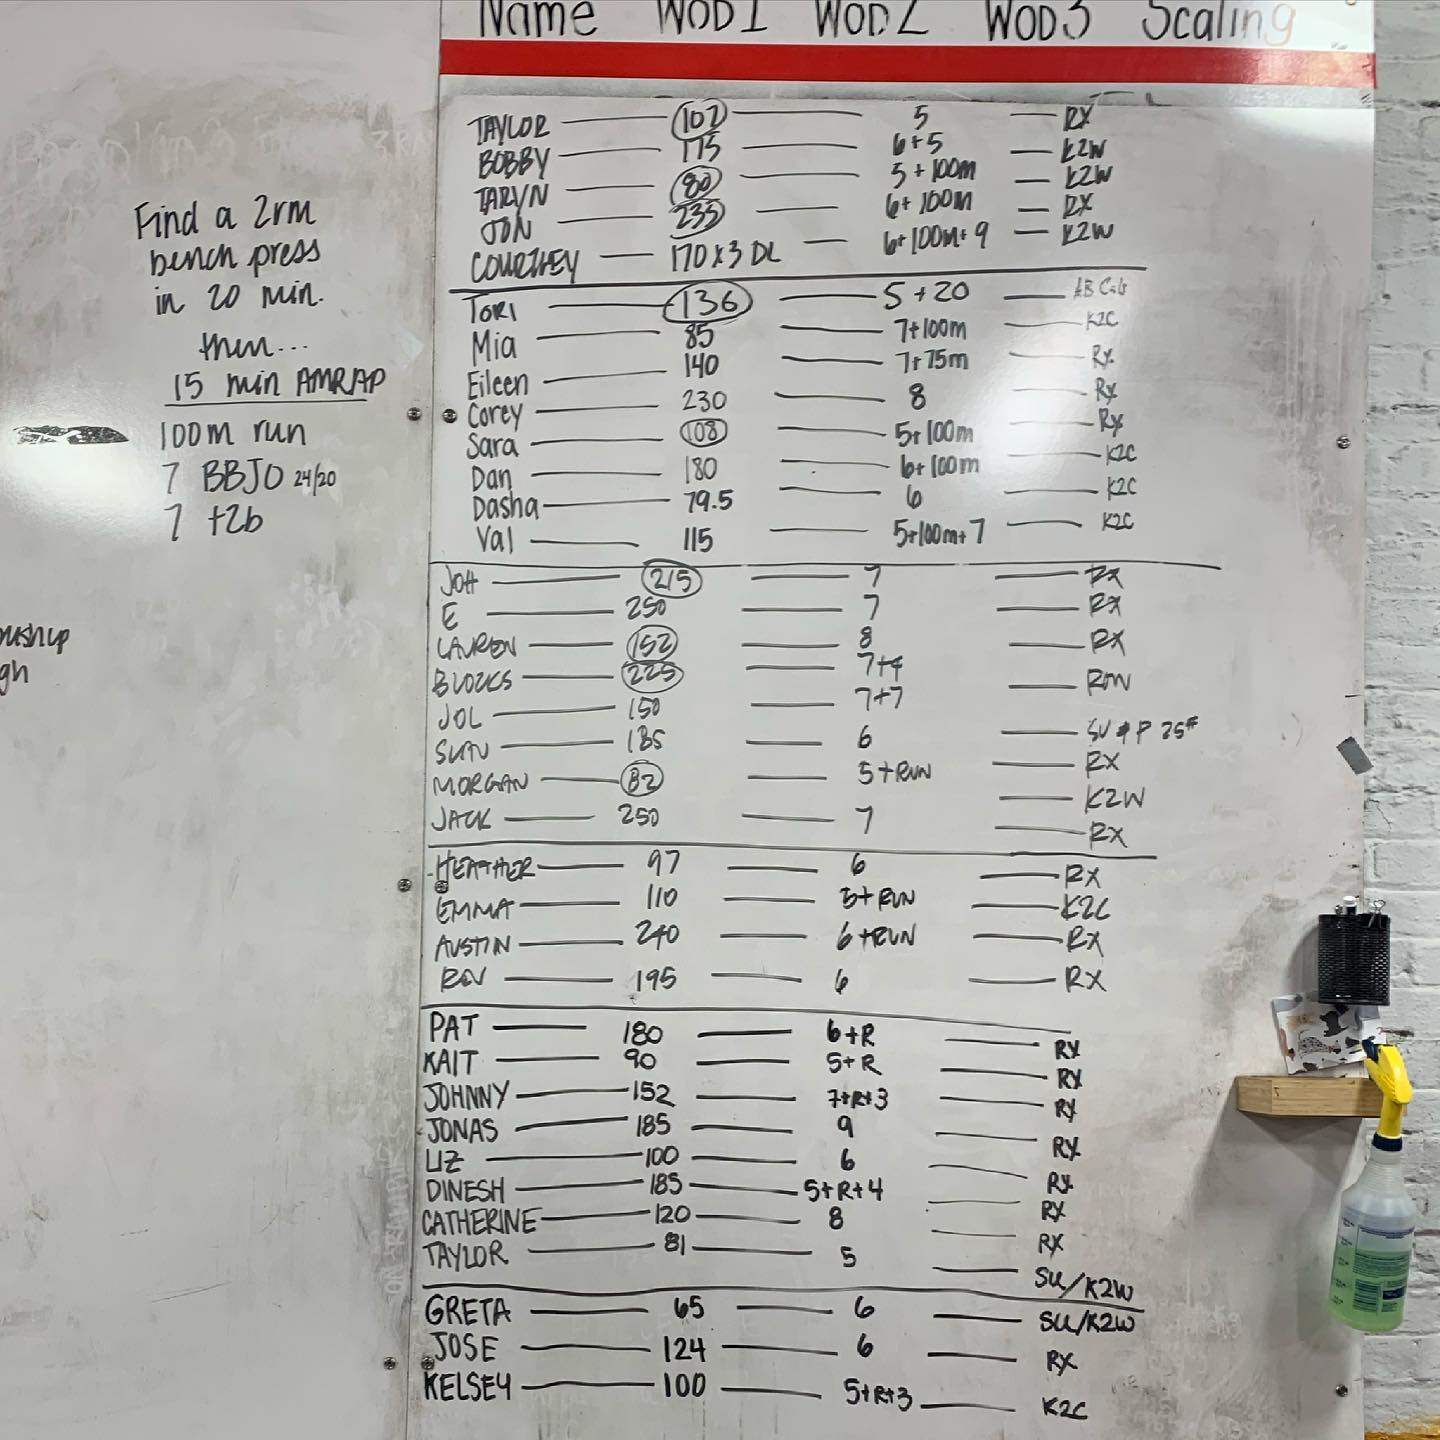 Name WOD1 WOD2 WOD3 Scaling
Find a 2rm
bench press
in 20 min.
then...
15 min AMRAP
100m run
7 BBJO 24/20
7 t2b
pushup
TAYLOR 102 5 RX
BOBBY 175 6+5 K2W
TARYN 80 5+100m K2W
JON 235 6+100m RX
COURTNEY 170x3 DL 6+100m+9 K2W
TORI 136 5+20 AB Cals
Mia 85 7+100m K2C
Eileen 140 7+75m Rx
Corey 230 8 Rx
Sara 108 5+100m Rx
Dan 180 6+100m K2C
Dasha 79.5 6 K2C
Val 115 5+100m+7 K2C
215 7 RX
E 250 7 RX
LAUREN 152 8 RX
225 7+4 ROW
150 7+7
185 6 RX
MORGAN 82 5+RUN K2W
JACK 250 7 RX
HEATHER 97 6 RX
EMMA 110 5+RUN K2C
AUSTIN 240 6+RUN RX
195 6 RX
PAT 180 6+R RX
KAIT 90 5+R RX
JOHNNY 152 7+R+3 RX
JONAS 185 9 RX
LIZ 100 6 RX
DINESH 185 5+R+4 RX
CATHERINE 120 8 RX
TAYLOR 81 5 SU/K2W
GRETA 65 6 SU/K2W
JOSE 124 6 RX
KELSEY 100 5+R+3 K2C